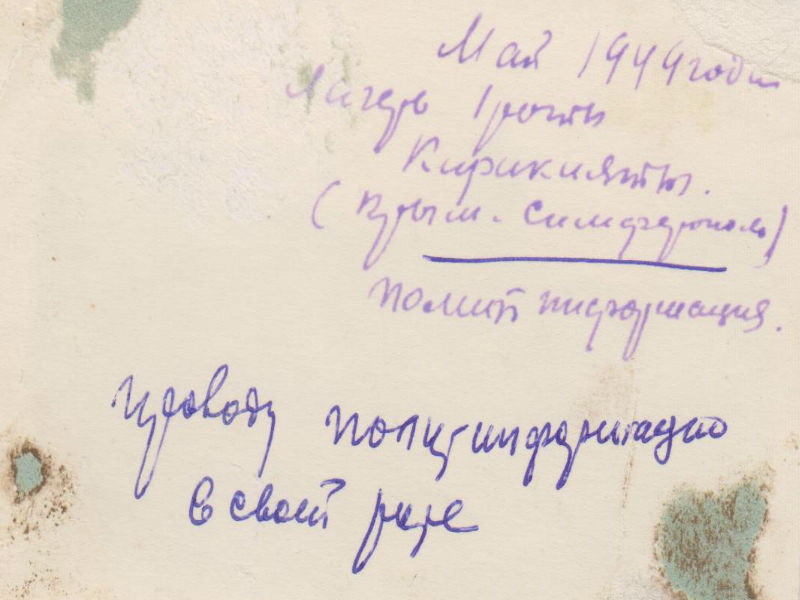 Май 1944 года
Лагерь 1 роты
Кирикияты.
(Крым. Симферополь)
полит информация.
Провожу политинформацию
в своей роте